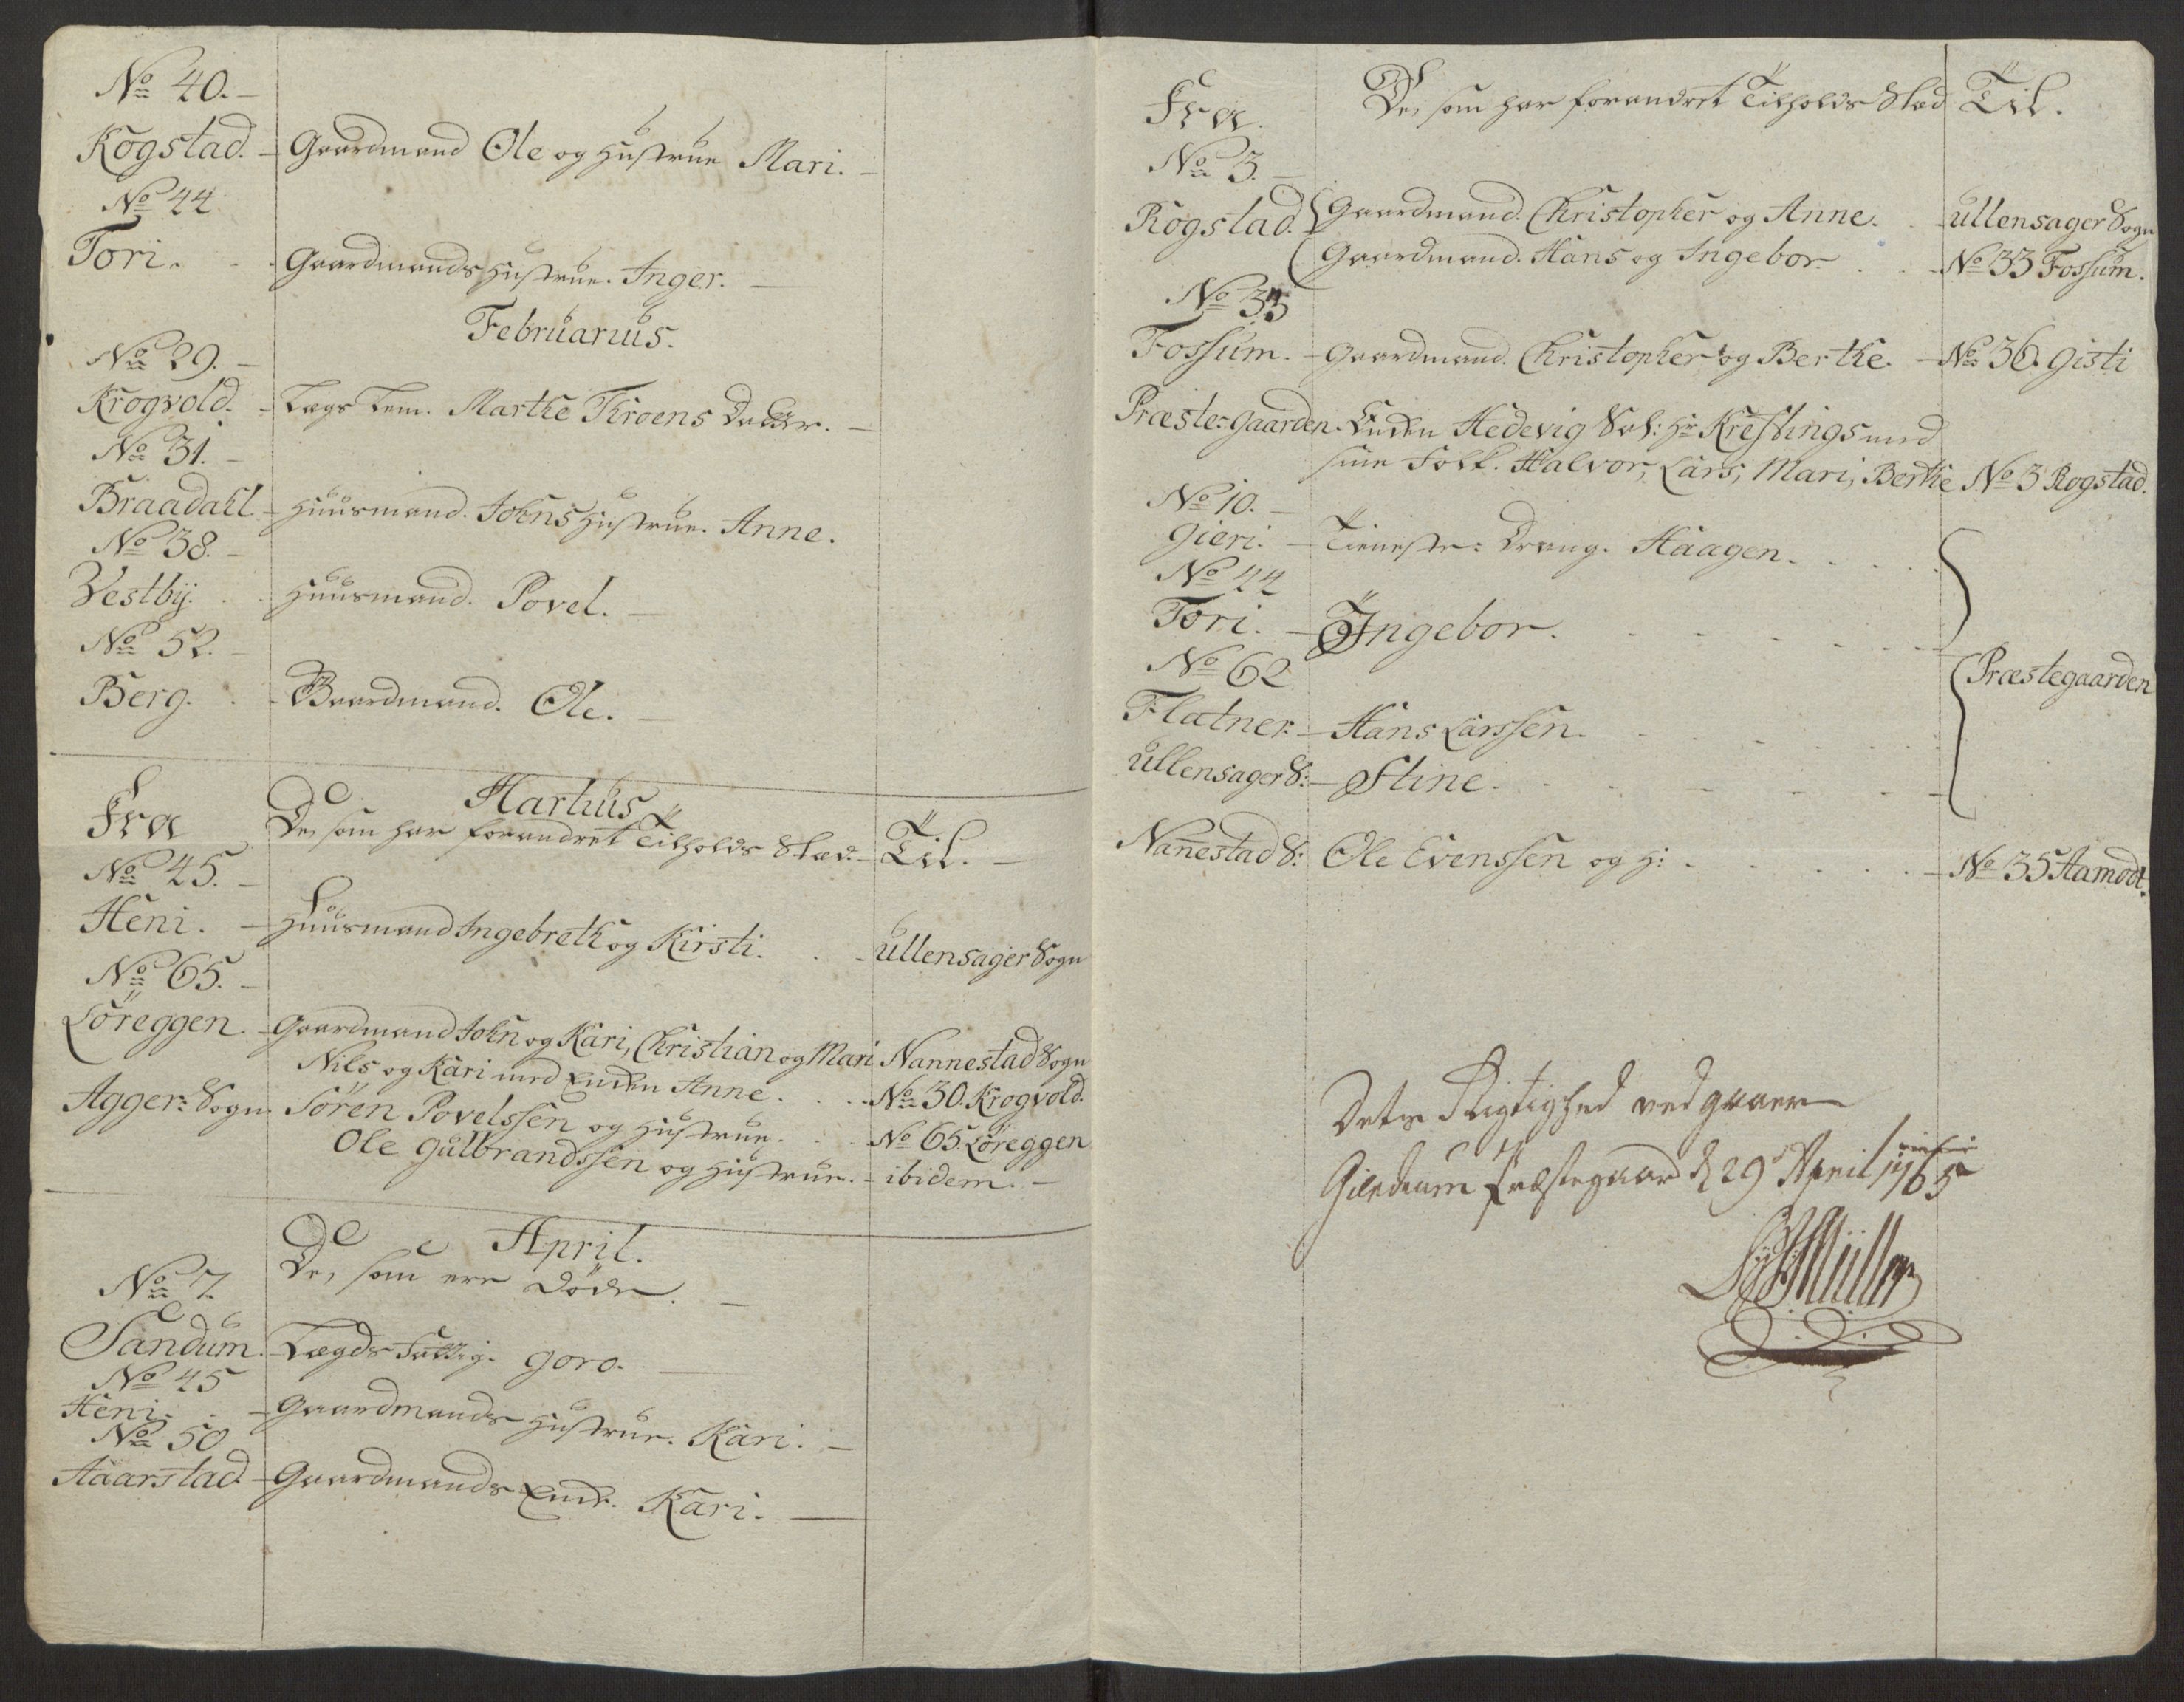 No 40.
Kogstad. Gaardmand Ole og Hustrue Mari.
No 44
Tori. Gaardmands Hustrue. Inger.
Februarius.
No 29.
Krogvold. Lægs Lem. Marthe Throens Datter.
No 31.
Braadahl. Huusmand. Johns Hustrue. Anne.
No 38.
Vestby. Huusmand. Povel.
No 52.
Berg. Gaardmand. Ole.
Martius
Fra De, som har forandret Tilholds Stæd. Til.
No 45.
Heni. Huusmand Ingebreth og Kirsti. Ullensager Sogn
No 65.
Löreggen. Gaardmand John og Kari, Christian og Mari Nannestad Sogn
Nils og Kari med Enken Anne. No 30. Krogvold.
Agger: Sogn. Sören Povelssen og Hustrue. No 65. Löreggen
Ole Gulbrandssen og Hustrue. ibidem.
April.
De, som ere Döde.
No 7.
Sandum. Lægds Fattig. Goro.
No 45
Heni. Gaardmands Hustrue. Kari.
No 50
Haarstad. Gaardmands Enke. Kari.
Fra. De, som har forandret Tilholds Stæd Til.
No 3.
Rogstad. Gaardmand. Christopher og Anne. Ullensager Sogn
Gaardmand. Hans og Ingebor. No 33 Fossum.
No 33
Fossum. Gaardmand. Christopher og Berthe. No 36. Gisti
Præste-gaarden. Enken Hedevig Sal: Hr Krefting's med
sine Folk. Halvor, Lars, Mari, Berthe No 3 Rogstad.
No 10.
Gieri. Tieneste: Dreng. Haagen.
No 44
Tori. Ingebor.
No 62
Præstegaarden
Flatner. Hans Larssen.
Ullensager S: Stine.
Nanestad S: Ole Evenssen og H: No 35 Aamodt.
Dets Rigtighed ved gaaer
Gierdrum Præstegaard d 29 April 1765
Müller